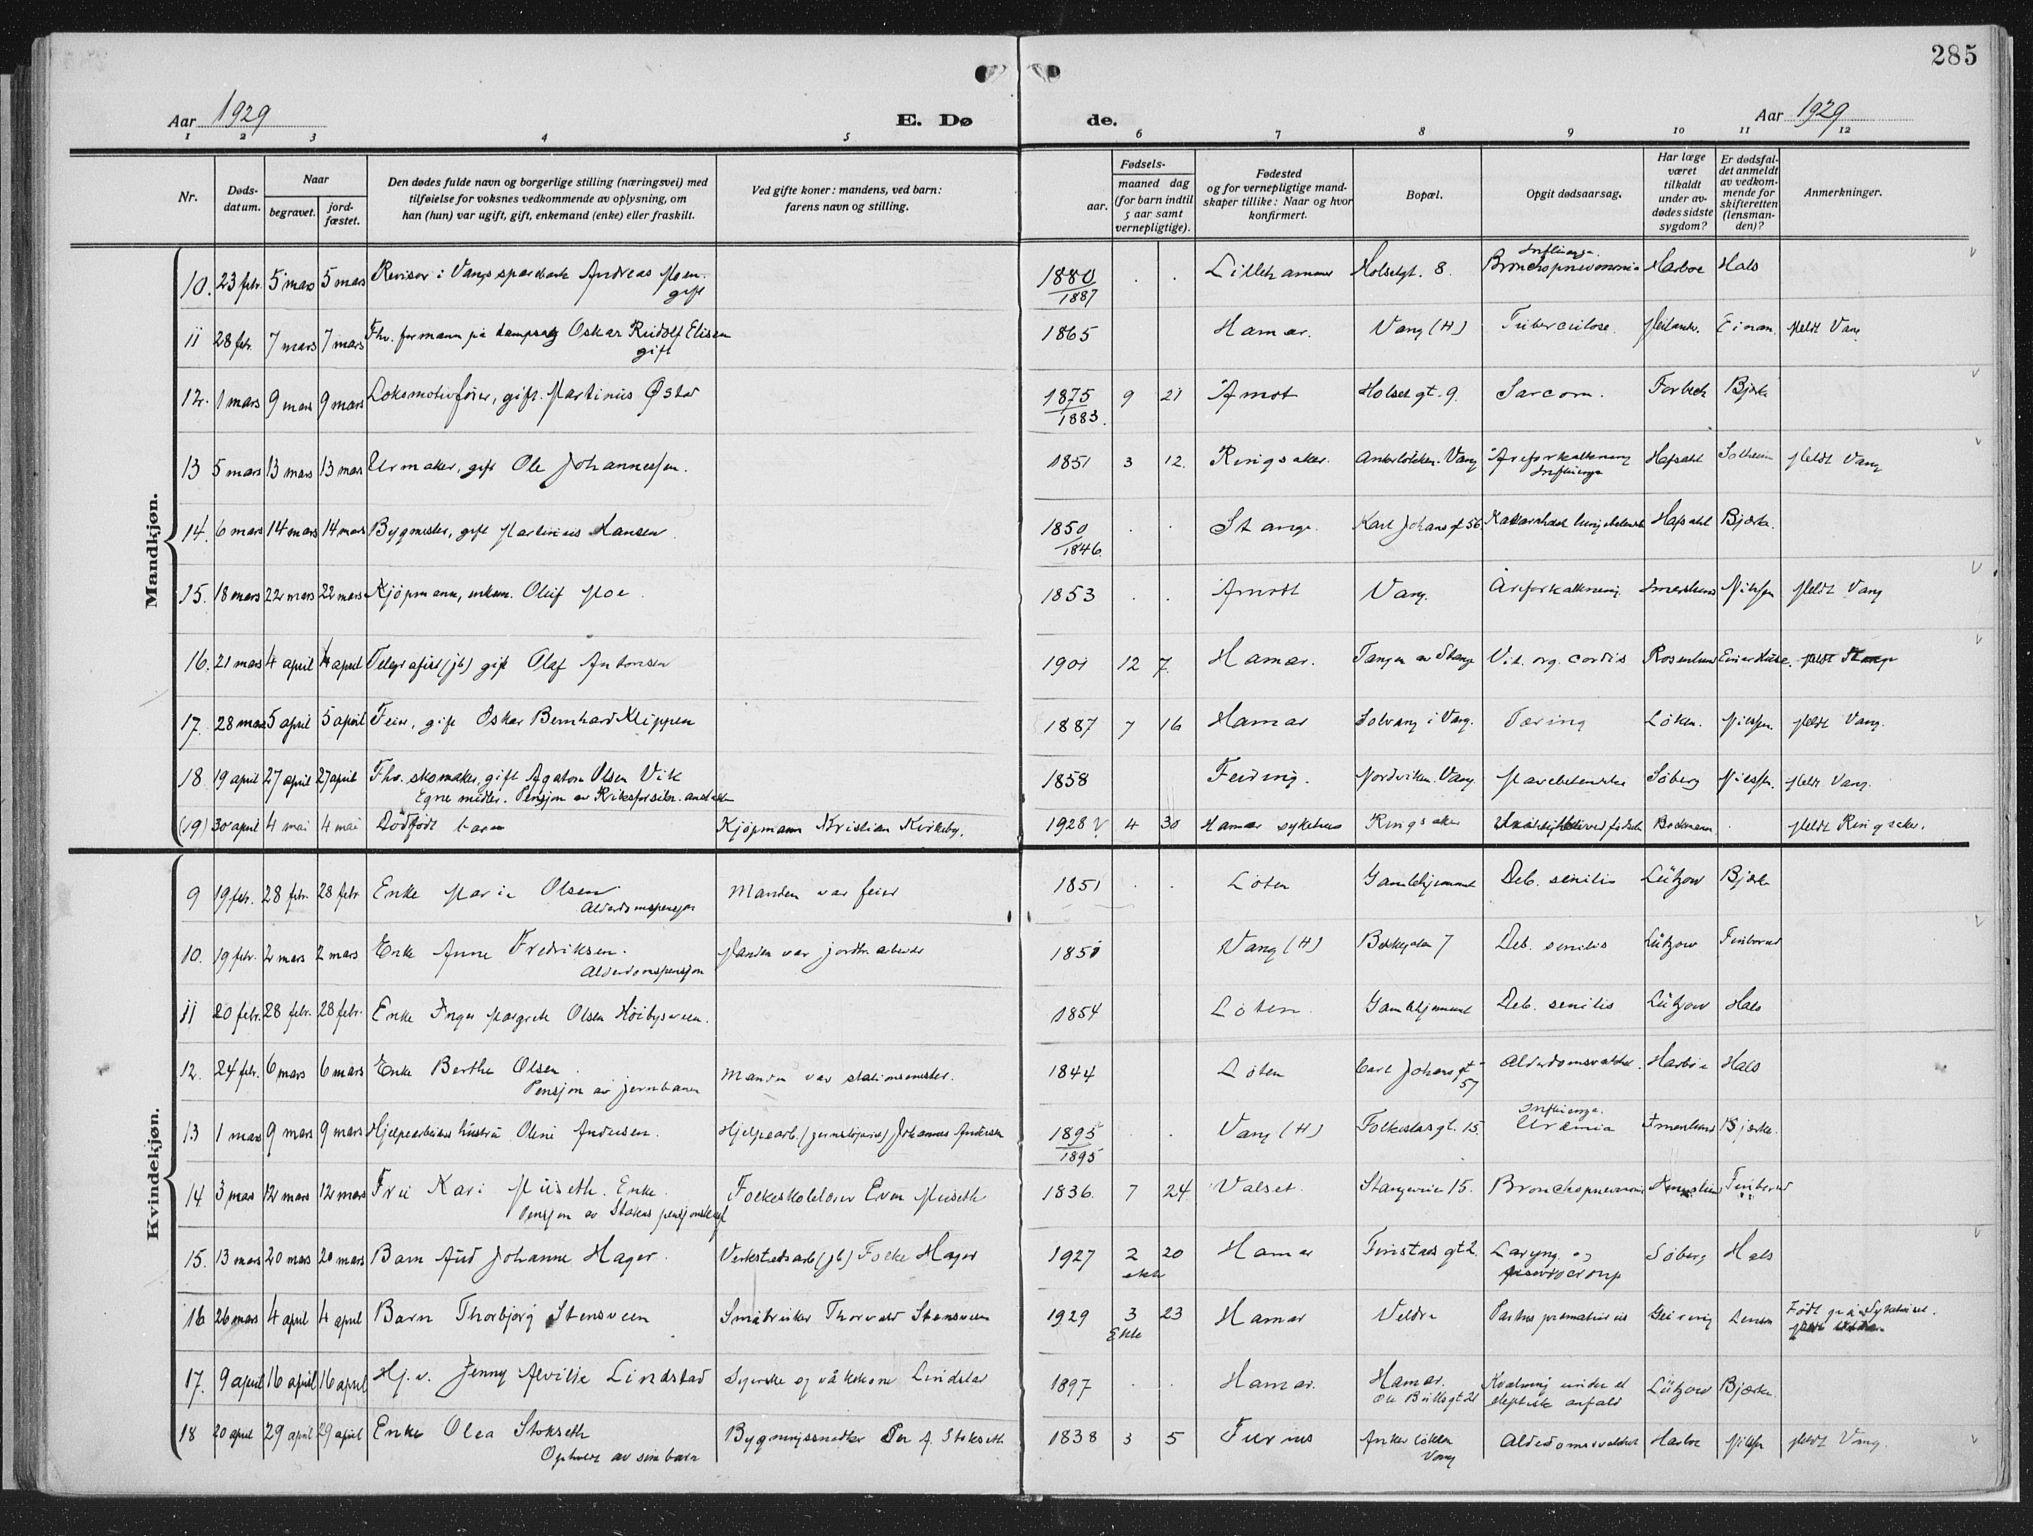 285
Aar 1929
E. Dø
de.
Aar 1929
1 2 3 4 5 6 7 8 9 10 11 12
Nr.
Døds-
datum.
Naar
begravet.
jord-
fæstet.
Den dødes fulde navn og borgerlige stilling (næringsvei) med
tilføielse for voksnes vedkommende av oplysning, om
han (hun) var ugift, gift, enkemand (enke) eller fraskilt.
Ved gifte koner: mandens, ved barn:
farens navn og stilling.
Fødsels-
aar.
maaned dag
(for barn indtil
5 aar samt
vernepligtige).
Fødested
og for vernepligtige mand-
skaper tillike: Naar og hvor
konfirmert.
Bopæl.
Opgit dødsaarsag.
Har læge
været
tilkaldt
under av-
dødes sidste
sygdom?
Er dødsfal-
det anmeldt
av vedkom-
mende for
skifteretten
(lensman-
den)?
Anmerkninger.
Mandkjøn.
10. 23 febr. 5 mars 5 mars Revisor i Vangs sparebank Andreas Moen. gift 1880/1887 Lillehammer Holsetgt. 8. Influenza. Bronchopneumonia Harboe Hals
11 28 febr. 7 mars 7 mars Fhv. formann på dampsag Oskar Rudolf Elisen gift 1865 Hamar. Vang (H) Tuberculose. Einan. Meldt Vang
12. 1 mars 9 mars 9 mars Lokomotivfører, gift. Martinus Østad 1875/1883. 9 21 Åmot Holsetgt. 9. Sarcom. Forbech Bjørke
13 5 mars 13 mars 13 mars Urmaker, gift Ole Johannessen. 1851 3 12. Ringsaker. Ankerløkken. Vang Åreforkalkning Influenza Hafsahl Solheim Meldt Vang
14. 6 mars 14 mars 14 mars Bygmester, gift Martinius Hansen 1850/1846. Stange. Karl Johansgt 56 Katarrhalsk lungebetennelse Hafsahl Bjørke.
15. 18 mars 22 mars 22 mars Kjøpmann, enkem. Oluf Moe. 1853 Åmott Vang. Åreforkalkning Imerslund Nilssen Meldt Vang
16. 21 mars 4 april 4 april Telegrafist (jb) gift Olaf Antonsen 1901 12 7. Hamar. Tangen av Stange Vit. org. cordis Rosenlund Meldt Stange
17. 28 mars 5 april 5 april Feier, gift Oskar Bernhard Klippen 1887 7 16 Hamar Solvang i Vang. Tæring Løken. Nilssen. Meldt Vang.
18 19 april 27 april 27 april Fhv. skomaker, gift Agaton Olsen Vik
Egne midler. Pensjon av Riksforsikr. anstalten 1858 Feiring. Nordviken. Vang. Mavebetennelse Søberg Nilssen. Meldt Vang.
(19) 30 april 4 mai 4 mai Dødfødt barn Kjøpmann Kristian Kirkeby. 1928 4 30 Hamar sykehus Ringsaker Beckmann Meldt Ringsaker.
Kvindekjøn.
9 19 febr. 28 febr. 28 febr Enke Marie Olsen. Alderdomspensjon Manden var feier 1851 Løten Gamlehjemmet Deb. senilis Lützow Bjørke
10. 19 febr. 2 mars 2 mars Enke Anne Fredriksen. Alderdomspensjon Manden var jordbr. arbeider 1850 Vang (H) Bekkegaten 7 Deb. senilis Lützow Finborud
11 20 febr. 28 febr. 28 febr. Enke Inger Margrete Olsen Høibysveen. 1854 Løten. Gamlehjemmet Deb. senilis Lützow Hals
12. 24 febr. 6 mars 6 mars Enke Berthe Olsen. Pensjon av jernbanen Manden var stationsmester. 1844 Løten Carl Johansgt 57 Alderdomsvakhet. Harboe Hals
13 1 mars 9 mars 9 mars Hjelpearbeiders hustru Oline Andersen. Hjelpearb. (jernstøperi) Johannes Andersen 1895/1895 Vang (H) Folkestadsgt. 15. Influenza. Urämia Imerslund Bjørke.
14. 3 mars 12 mars 12 mars Fru Kari Museth. Enke. Pensjon av Statens pensjonskasse Folkeskolelærer Even Museth 1836. 7 24. Valset. Stangeveien 15. Bronchopneumoni Imerslund Finborud
15. 13 mars 20 mars 20 mars Barn Aud Johanne Hager. Verkstedsarb (jb) Folke Hager 1927 2 20 ekte Hamar Finstadsgt 2. Laryng. og pseudocroup Søberg Hals
16 26 mars 4 april 4 april Barn Thorbjørg Stensveen Småbruker Thorvald Stensveen 1929 3 23 Ekte Hamar Veldre Partus prematurus Geiring Jensen Født på Sykehuset.
17. 9 april 16 april 16 april Hj. v. Jenny Alvilde Lindstad Syerske og våkekone Lindstad 1897 Hamar. Hamar. Ole Bullsgt 21 Kvælning under et eleptisk anfald Lützow Bjørke.
18 20 april 29 april 29 april Enke Olea Stokseth Opholdt av sine barn Bygningssnedker Per A. Stokseth 1838 3 5 Furnes Ankerløkken Vang Alderdomssvakhet Harboe Nilssen Meldt Vang.